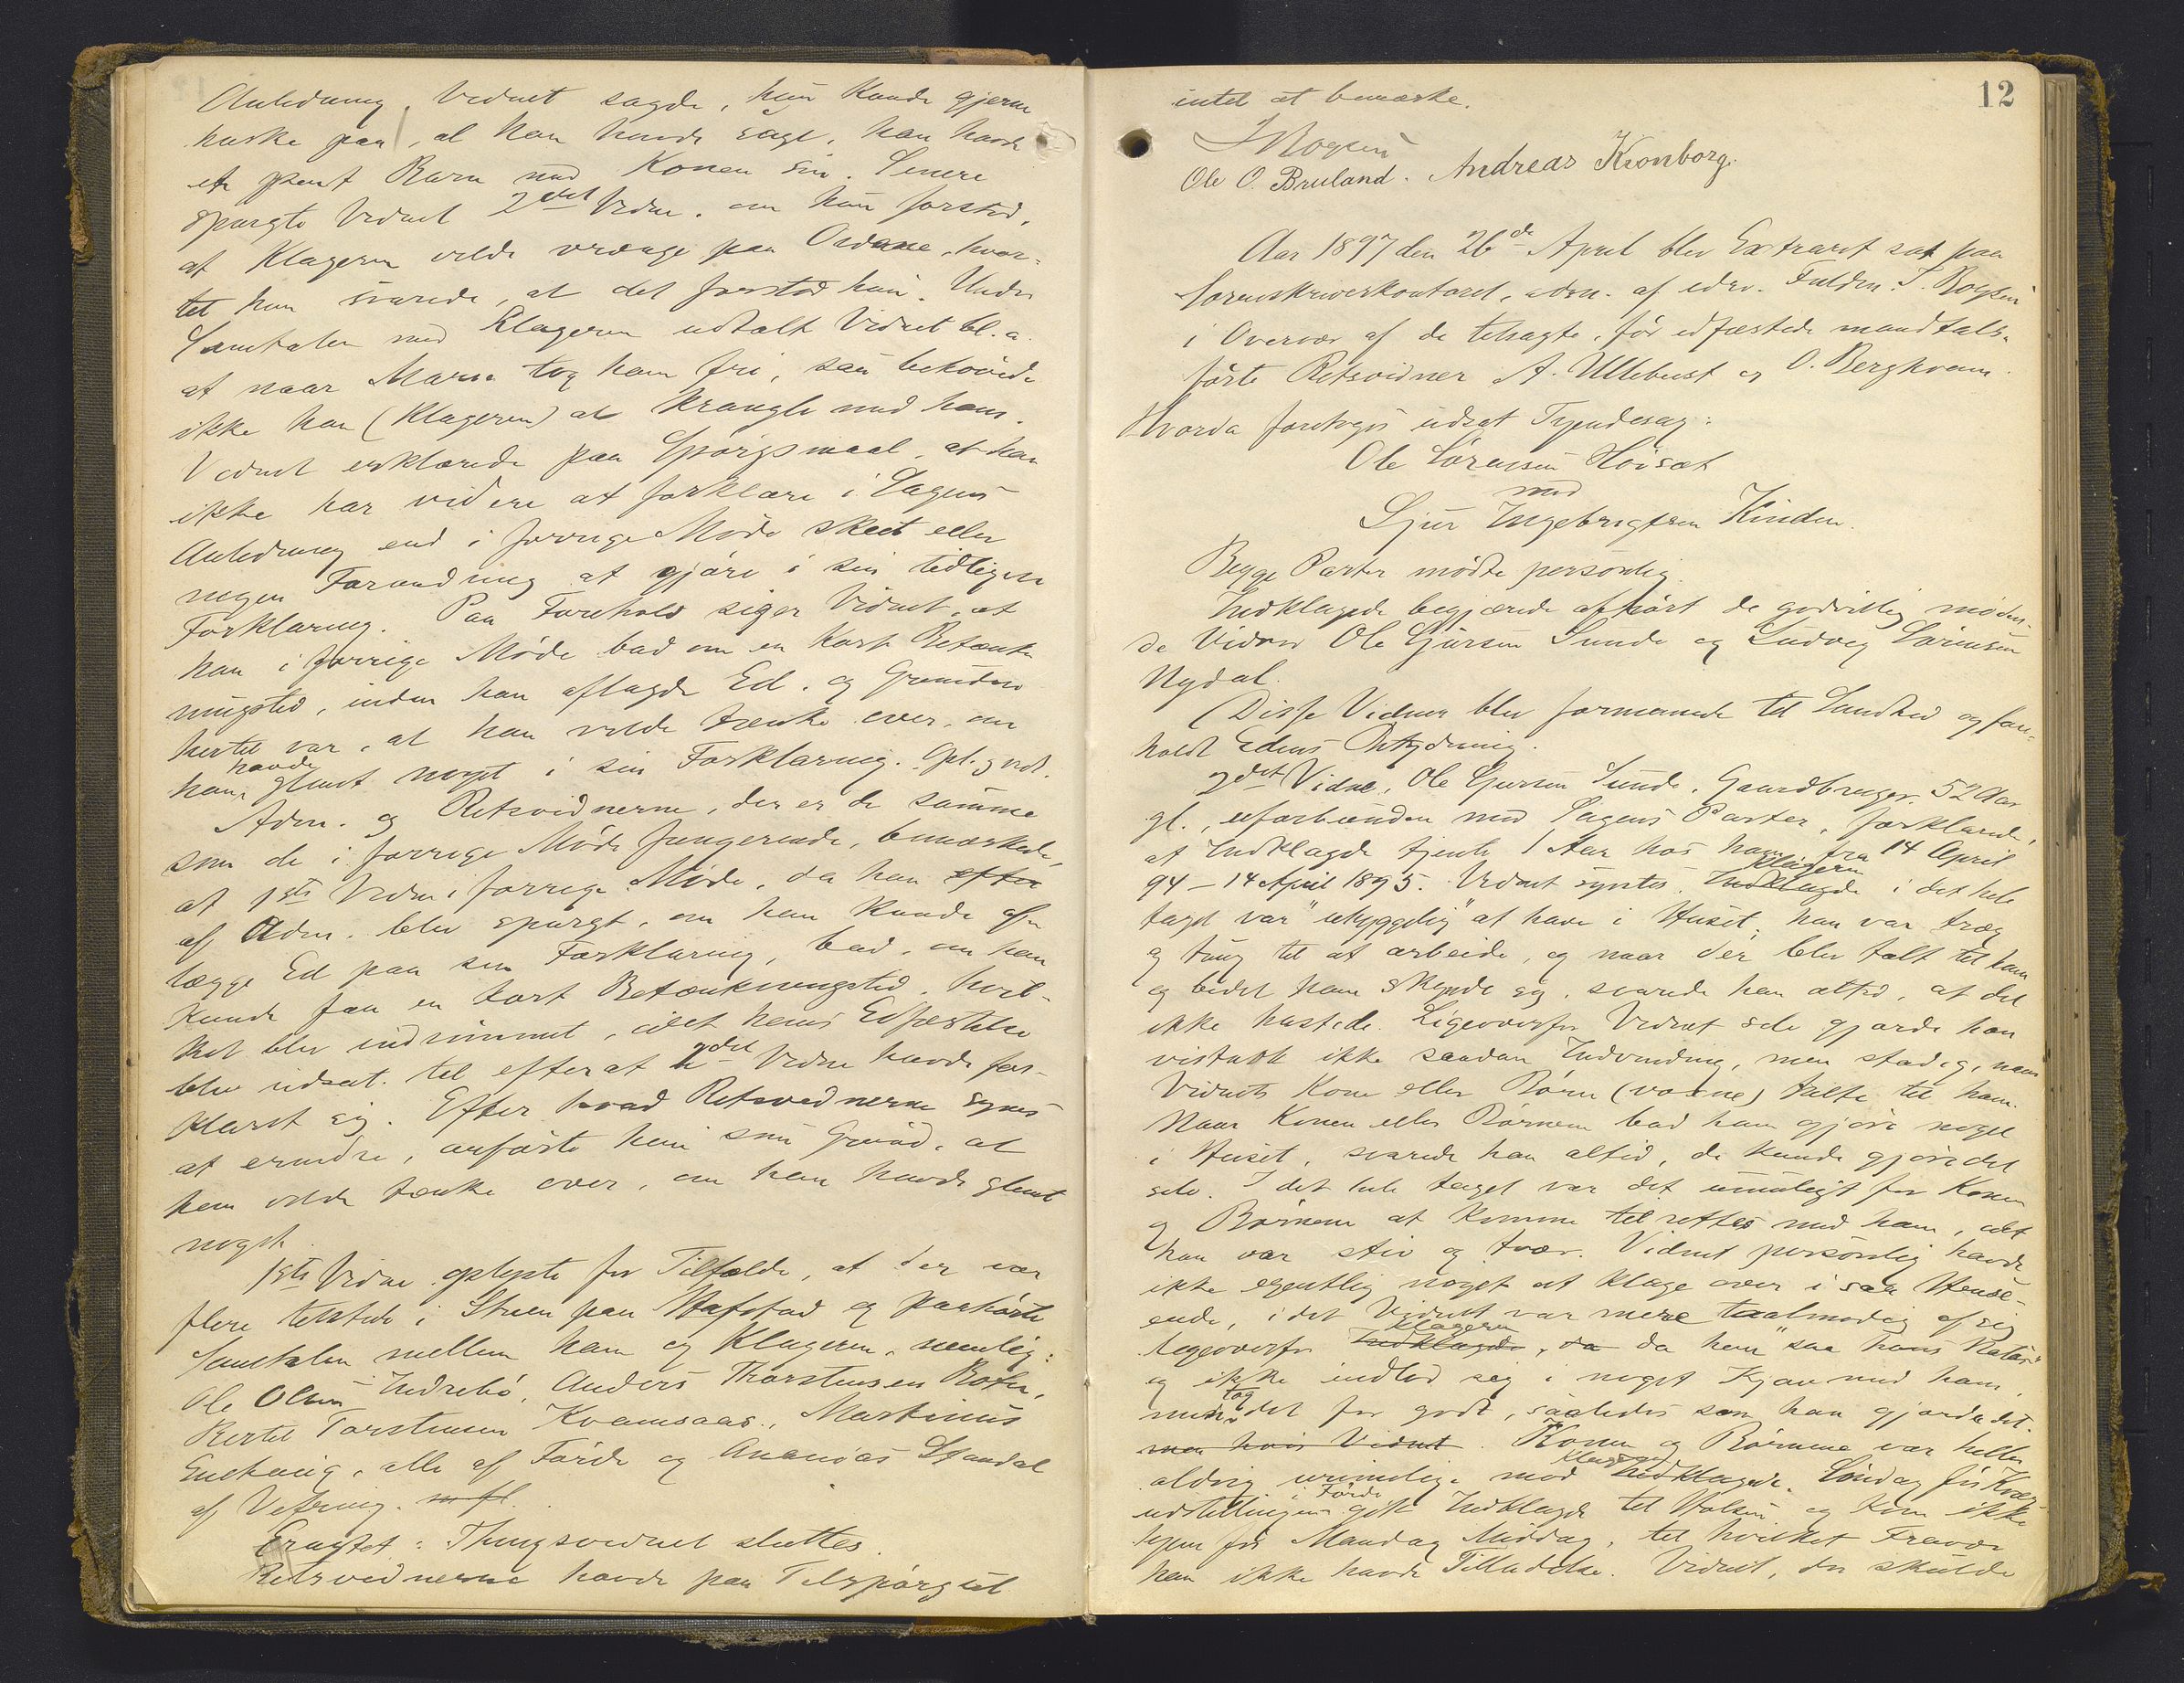 Anledning. Vidnet sagde, hun kunde gjerne
huske paa, at han havde sagt, han havde
et pent Barn med Konen sin. Senere
spurgte Vidnet 2det Vidne, om hun forstod,
at Klageren vilde vrænge paa Ordene, hvor-
til hun svarede, at det forstod hun. Under
Samtalen med Klageren udtalte Vidnet bl. a.
at naar Maren tog ham fri, saa behøvede
ikke han (Klageren) at krangle med ham.
Vidnet erklærede paa Spørgsmaal, at han
ikke har videre at forklare i Sagens
Anledning end i forrige Møde skeet eller
nogen Forandring at gjøre i sin tidligere
Forklaring. Paa Forehold siger Vidnet, at
han i forrige Møde bad om en kort Betænk-
ningstid, inden han aflagde Ed, og Grunden
hertil var, at han vilde tænke over, om
han havde glemt noget i sin Forklaring. Opl. & vedt.
Adm. og Retsvidnerne, der er de samme
som de i forrige Møde fungerende, bemærkede,
at 1ste Vidne i forrige Møde, da han efter
af Adm. blev spurgt, om han kunde af-
lægge Ed paa sin Forklaring, bad, om han
kunde faa en kort Betænkningstid, hvil-
ket blev indrømmet, idet hans Edfæstelse
blev udsat til efterat 2det Vidne havde for-
klaret sig. Efter hvad Retsvidnerne synes
at erindre, anførte han som Grund, at
han vilde tænke over, om han havde glemt
noget.
1ste Vidne oplyste for Tilfælde, at der var
flere tilstede i Stuen paa Hafstad og paahørte
Samtalen mellem ham og Klageren, nemlig:
Ole Olsen Indrebø, Anders Thorstensen
Bertel Torstensen Kvamsaas, Martinus
alle af Førde og Ananias Standal
af Vefring. m fl.
Eragtet: Thingsvidnet sluttes.
Retsvidnerne havde paa Tilspørgsel
12
intet at bemærke.
Ole O. Bruland. Andreas Kronborg.
Aar 1897 den 26de April blev Extraret sat paa
Sorenskriverkontoret, adm. af edsv. Fuldm. J.
i Overvær af de tilsagte, før edfæstede mandtals-
førte Retsvidner A. Ullebust og O. Bergkvam.
Hvorda foretoges udsat Tyendesag:
Ole Sørensen Høisæt
mod
Sjur Ingebrigtsen Kinden.
Begge Parter mødte personlig.
Indklagede begjærede afhørt de godvillig møden-
de Vidner Ole Gjursen Sunde og Ludvig Sørensen
Nydal.
Disse Vidner blev formanede til Sandhed og fore-
holdt Edens Betydning.
2det Vidne, Ole Gjursen Sunde, Gaardbruger, 52 Aar
gl., uforbunden med Sagens Parter, forklarede,
at Indklagede tjente 1 Aar hos ham fra 14 April
94 – 14 April 1895. Vidnet syntes, Indklagede Klageren i det hele
taget var "uhyggelig" at have i Huset; han var træg
og tung til at arbeide, og naar der blev talt til ham
og bedet ham skynde sig, svarede han altid, at det
ikke hastede. Ligeoverfor Vidnet selv gjorde han
vistnok ikke saadan Indvending, men stadig, naar
Vidnets Kone eller Børn (voxne) talte til ham.
Naar Konen eller Børnene bad ham gjøre noget
i Huset, svarede han altid, de kunde gjøre det
selv. I det hele taget var det umuligt for Konen
og Børnene at komme tilrettes med ham, idet
han var stiv og tvær. Vidnet personlig havde
ikke egentlig noget at klage over i saa Hense-
ende, idet Vidnet var mere taalmodig af sig
ligeoverfor Indklagede Klageren, da da han "saa hans Natur"
og ikke indlod sig i noget Kjæv med ham,
men tog det for godt, saaledes som han gjorde det.
men hvis Vidnet. Konen og Børnene var heller
aldrig urimelige mod Indklagede Klageren. Søndag før
udstillingen i Førde gik Indklagede til Holsen og kom ikke
igjen før Mandag Middag, til hvilket Fravær
han ikke havde Tilladelse. Vidnet, der skulde